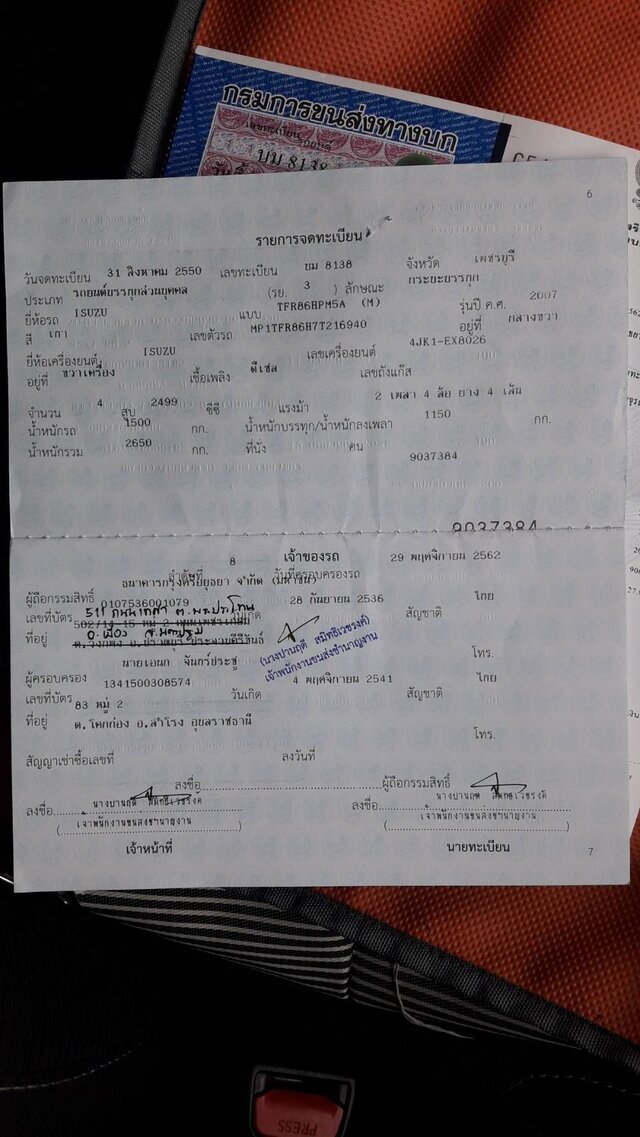 กรมการขนส่งทางบก
เลขทะเบียน
บม 8138
6
รายการจดทะเบียน
วันจดทะเบียน 31 สิงหาคม 2550 เลขทะเบียน บม 8138 จังหวัด เพชรบุรี
ประเภท รถยนต์บรรทุกส่วนบุคคล (รย. 3 ) ลักษณะ กระบะบรรทุก
ยี่ห้อรถ ISUZU แบบ TFR86HPM5A (M) รุ่นปี ค.ศ. 2007
สี เทา เลขตัวรถ MP1TFR86H7T216940 อยู่ที่ กลางขวา
ยี่ห้อเครื่องยนต์ ISUZU เลขเครื่องยนต์ 4JK1-EX8026
อยู่ที่ ขวาเครื่อง เชื้อเพลิง ดีเซล เลขถังแก๊ส
จำนวน 4 สูบ 2499 ซีซี แรงม้า 2 เพลา 4 ล้อ ยาง 4 เส้น
น้ำหนักรถ 1500 กก. น้ำหนักบรรทุก/น้ำหนักลงเพลา 1150 กก.
น้ำหนักรวม 2650 กก. ที่นั่ง คน
9037384
9037384
เจ้าของรถ
ลำดับที่ 8 วันที่ครอบครองรถ 29 พฤศจิกายน 2562
ผู้ถือกรรมสิทธิ์ ธนาคารกรุงศรีอยุธยา จำกัด (มหาชน)
เลขที่บัตร 0107536001079 วันเกิด 28 กันยายน 2536 สัญชาติ ไทย
511 ต.พระประโทน
502/14-15 หมู่ 2 ถนนเพชรเกษม
อ.เมือง จ.นครปฐม
ที่อยู่
โทร.
(นางปานฤดี สมิทธิเวชรงค์)
เจ้าพนักงานขนส่งชำนาญงาน
ผู้ครอบครอง นายเอนก จันทร์ประชู
เลขที่บัตร 1341500308574 วันเกิด 4 พฤศจิกายน 2541 สัญชาติ ไทย
ที่อยู่ 83 หมู่ 2
ต.โคกก่อง อ.สำโรง อุบลราชธานี
โทร.
สัญญาเช่าซื้อเลขที่ ลงวันที่
ลงชื่อ ผู้ถือกรรมสิทธิ์
ลงชื่อ นางปานฤดี สมิทธิเวชรงค์ ลงชื่อ นางปานฤดี สมิทธิเวชรงค์
( เจ้าพนักงานขนส่งชำนาญงาน ) ( เจ้าพนักงานขนส่งชำนาญงาน )
เจ้าหน้าที่ นายทะเบียน
7
PRESS